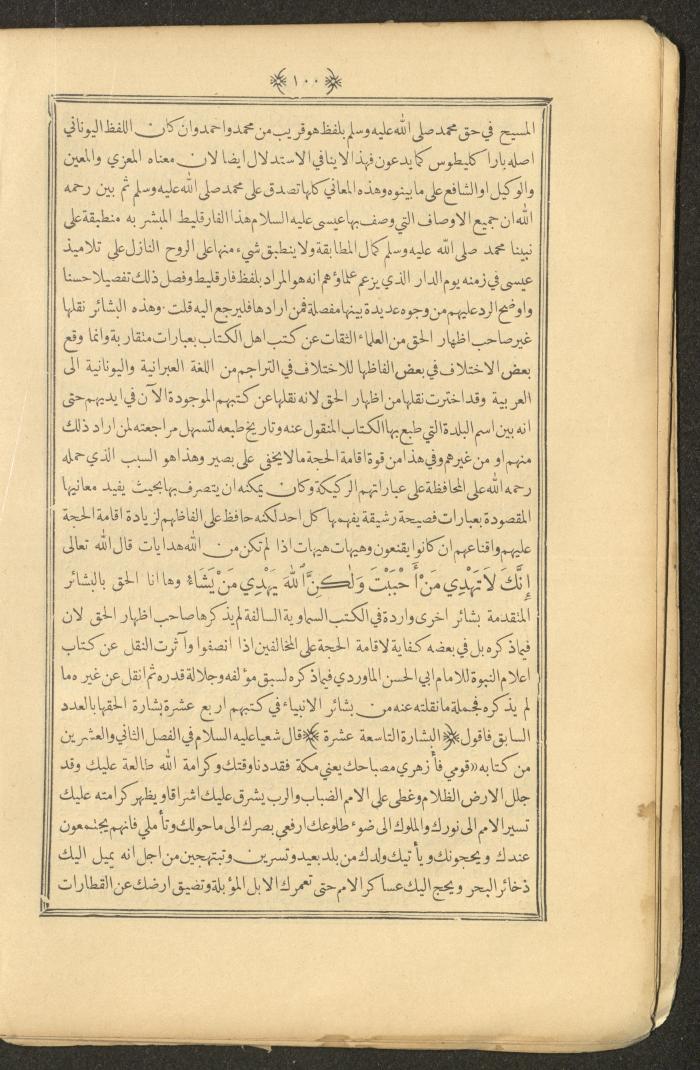 ﴿ ١٠٠ ﴾
المسيح في حق محمد صلى الله عليه وسلم بلفظ هو قريب من محمد واحمد وان كان اللفظ اليوناني
اصله باراكليطوس كما يدعون فهذا لاينافي الاستدلال ايضا لان معناه المعزي والمعين
والوكيل او الشافع على ما بينوه وهذه المعاني كلها تصدق على محمد صلى الله عليه وسلم ثم بين رحمه
الله ان جميع الاوصاف التي وصف بها عيسى عليه السلام هذا الفارقليط المبشر به منطبقة على
نبينا محمد صلى الله عليه وسلم كمال المطابقة ولا ينطبق شيء منها على الروح النازل على تلاميذ
عيسى في زمنه يوم الدار الذي يزعم علماؤهم انه هو المراد بلفظ فارقليط وفصل ذلك تفصيلا حسنا
واوضح الرد عليهم من وجوه عديدة بينها مفصلة فمن ارادها فليرجع اليه قلت ۰ وهذه البشائر نقلها
غير صاحب اظهار الحق من العلماء الثقات عن كتب اهل الكتاب بعبارات متقاربة وانما وقع
بعض الاختلاف في بعض الفاظها للاختلاف في التراجم من اللغة العبرانية واليونانية الى
العربية وقد اخترت نقلها من اظهار الحق لانه نقلها عن كتبهم الموجودة الآن في ايديهم حتى
انه بين اسم البلدة التي طبع بها الكتاب المنقول عنه وتاريخ طبعه لتسهل مراجعته لمن اراد ذلك
منهم او من غيرهم وفي هذا من قوة اقامة الحجة مالا يخفى على بصير وهذا هو السبب الذي حمله
رحمه الله على المحافظة على عباراتهم الركيكة وكان يمكنه ان يتصرف بها بحيث يفيد معانيها
المقصودة بعبارات فصيحة رشيقة يفهمها كل احد لكنه حافظ على الفاظهم لزيادة اقامة الحجة
عليهم واقناعهم ان كانوا يقنعون وهيهات هيهات اذا لم تكن من الله هدايات قال الله تعالى
إِنَّكَ لَا تَهْدِي مَنْ أَحْبَبْتَ وَلٰكِنَّ ٱللّٰهَ يَهْدِي مَنْ يَشَاءُ وها انا الحق بالبشائر
المتقدمة بشائر اخرى واردة في الكتب السماوية السالفة لم يذكرها صاحب اظهار الحق لان
فيما ذكره بل في بعضه كفاية لاقامة الحجة على المخالفين اذا انصفوا وآثرت النقل عن كتاب
اعلام النبوة للامام ابي الحسن الماوردي فيما ذكره لسبق مؤلفه وجلالة قدره ثم انقل عن غيره ما
لم يذكره فجملة ما نقلته عنه من بشائر الانبياء في كتبهم اربع عشرة بشارة الحقها بالعدد
السابق فاقول ﴿ البشارة التاسعة عشرة ﴾ قال شعيا عليه السلام في الفصل الثاني والعشرين
من كتابه «قومي فأزهري مصباحك يعني مكة فقد دنا وقتك وكرامة الله طالعة عليك وقد
جلل الارض الظلام وغطى على الامم الضباب والرب يشرق عليك اشراقا ويظهر كرامته عليك
تسير الامم الى نورك والملوك الى ضوء طلوعك ارفعي بصرك الى ما حولك وتأملي فانهم يجتمعون
عندك ويحجونك ويأتيك ولدك من بلد بعيد وتسرين وتبتهجين من اجل انه يميل اليك
ذخائر البحر ويحج اليك عساكر الامم حتى تعمرك الابل المؤبلة وتضيق ارضك عن القطارات